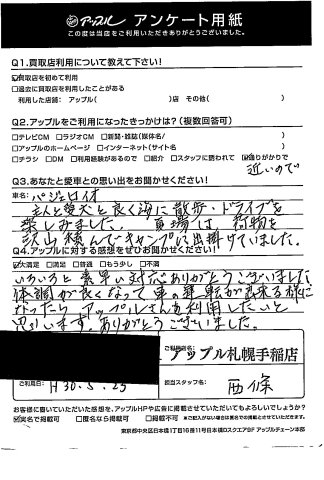 アップル アンケート用紙
この度は当店をご利用いただきありがとうございました。
Q1.買取店利用について教えて下さい!
☑買取店を初めて利用
□過去に買取店を利用したことがある
利用した店舗: アップル( )店 その他( )
Q2.アップルをご利用になったきっかけは?(複数回答可)
□テレビCM □ラジオCM □新聞・雑誌(媒体名/ )
□アップルのホームページ □インターネット(サイト名 )
□チラシ □DM □利用経験があるので □紹介 □スタッフに誘われて ☑通りがかりで
近いので
Q3.あなたと愛車との思い出をお聞かせください!
車名: パジェロイオ
主人と愛犬と良く海に散歩・ドライブを
楽しみました。夏場は、荷物を
沢山積んでキャンプに出掛けていました。
Q4.アップルに対する感想をぜひお聞かせください!
☑大満足 □満足 □普通 □もう少し □不満
いろいろと素早い対応ありがとうございました
体調が良くなって車の運転が出来る様に
なったらアップルさんを利用したいと
思います。ありがとうございました。
ご利用店名:
アップル札幌手稲店
ご利用日: H30.5.25
担当スタッフ名: 西條
お客様に書いていただいた感想を、アップルHPや広告に掲載させていただいてもよろしいでしょうか?
☑実名で掲載可 □匿名なら掲載可 □掲載不可
東京都中央区日本橋1丁目16番11号日本橋ロスクエア8F アップルチェーン本部